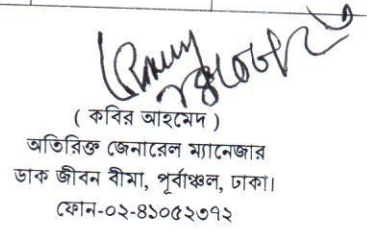 ( কবির আহমেদ )
অতিরিক্ত জেনারেল ম্যানেজার
ডাক জীবন বীমা, পূর্বাঞ্চল, ঢাকা।
ফোন-০২-৪১০৫২৩৭২